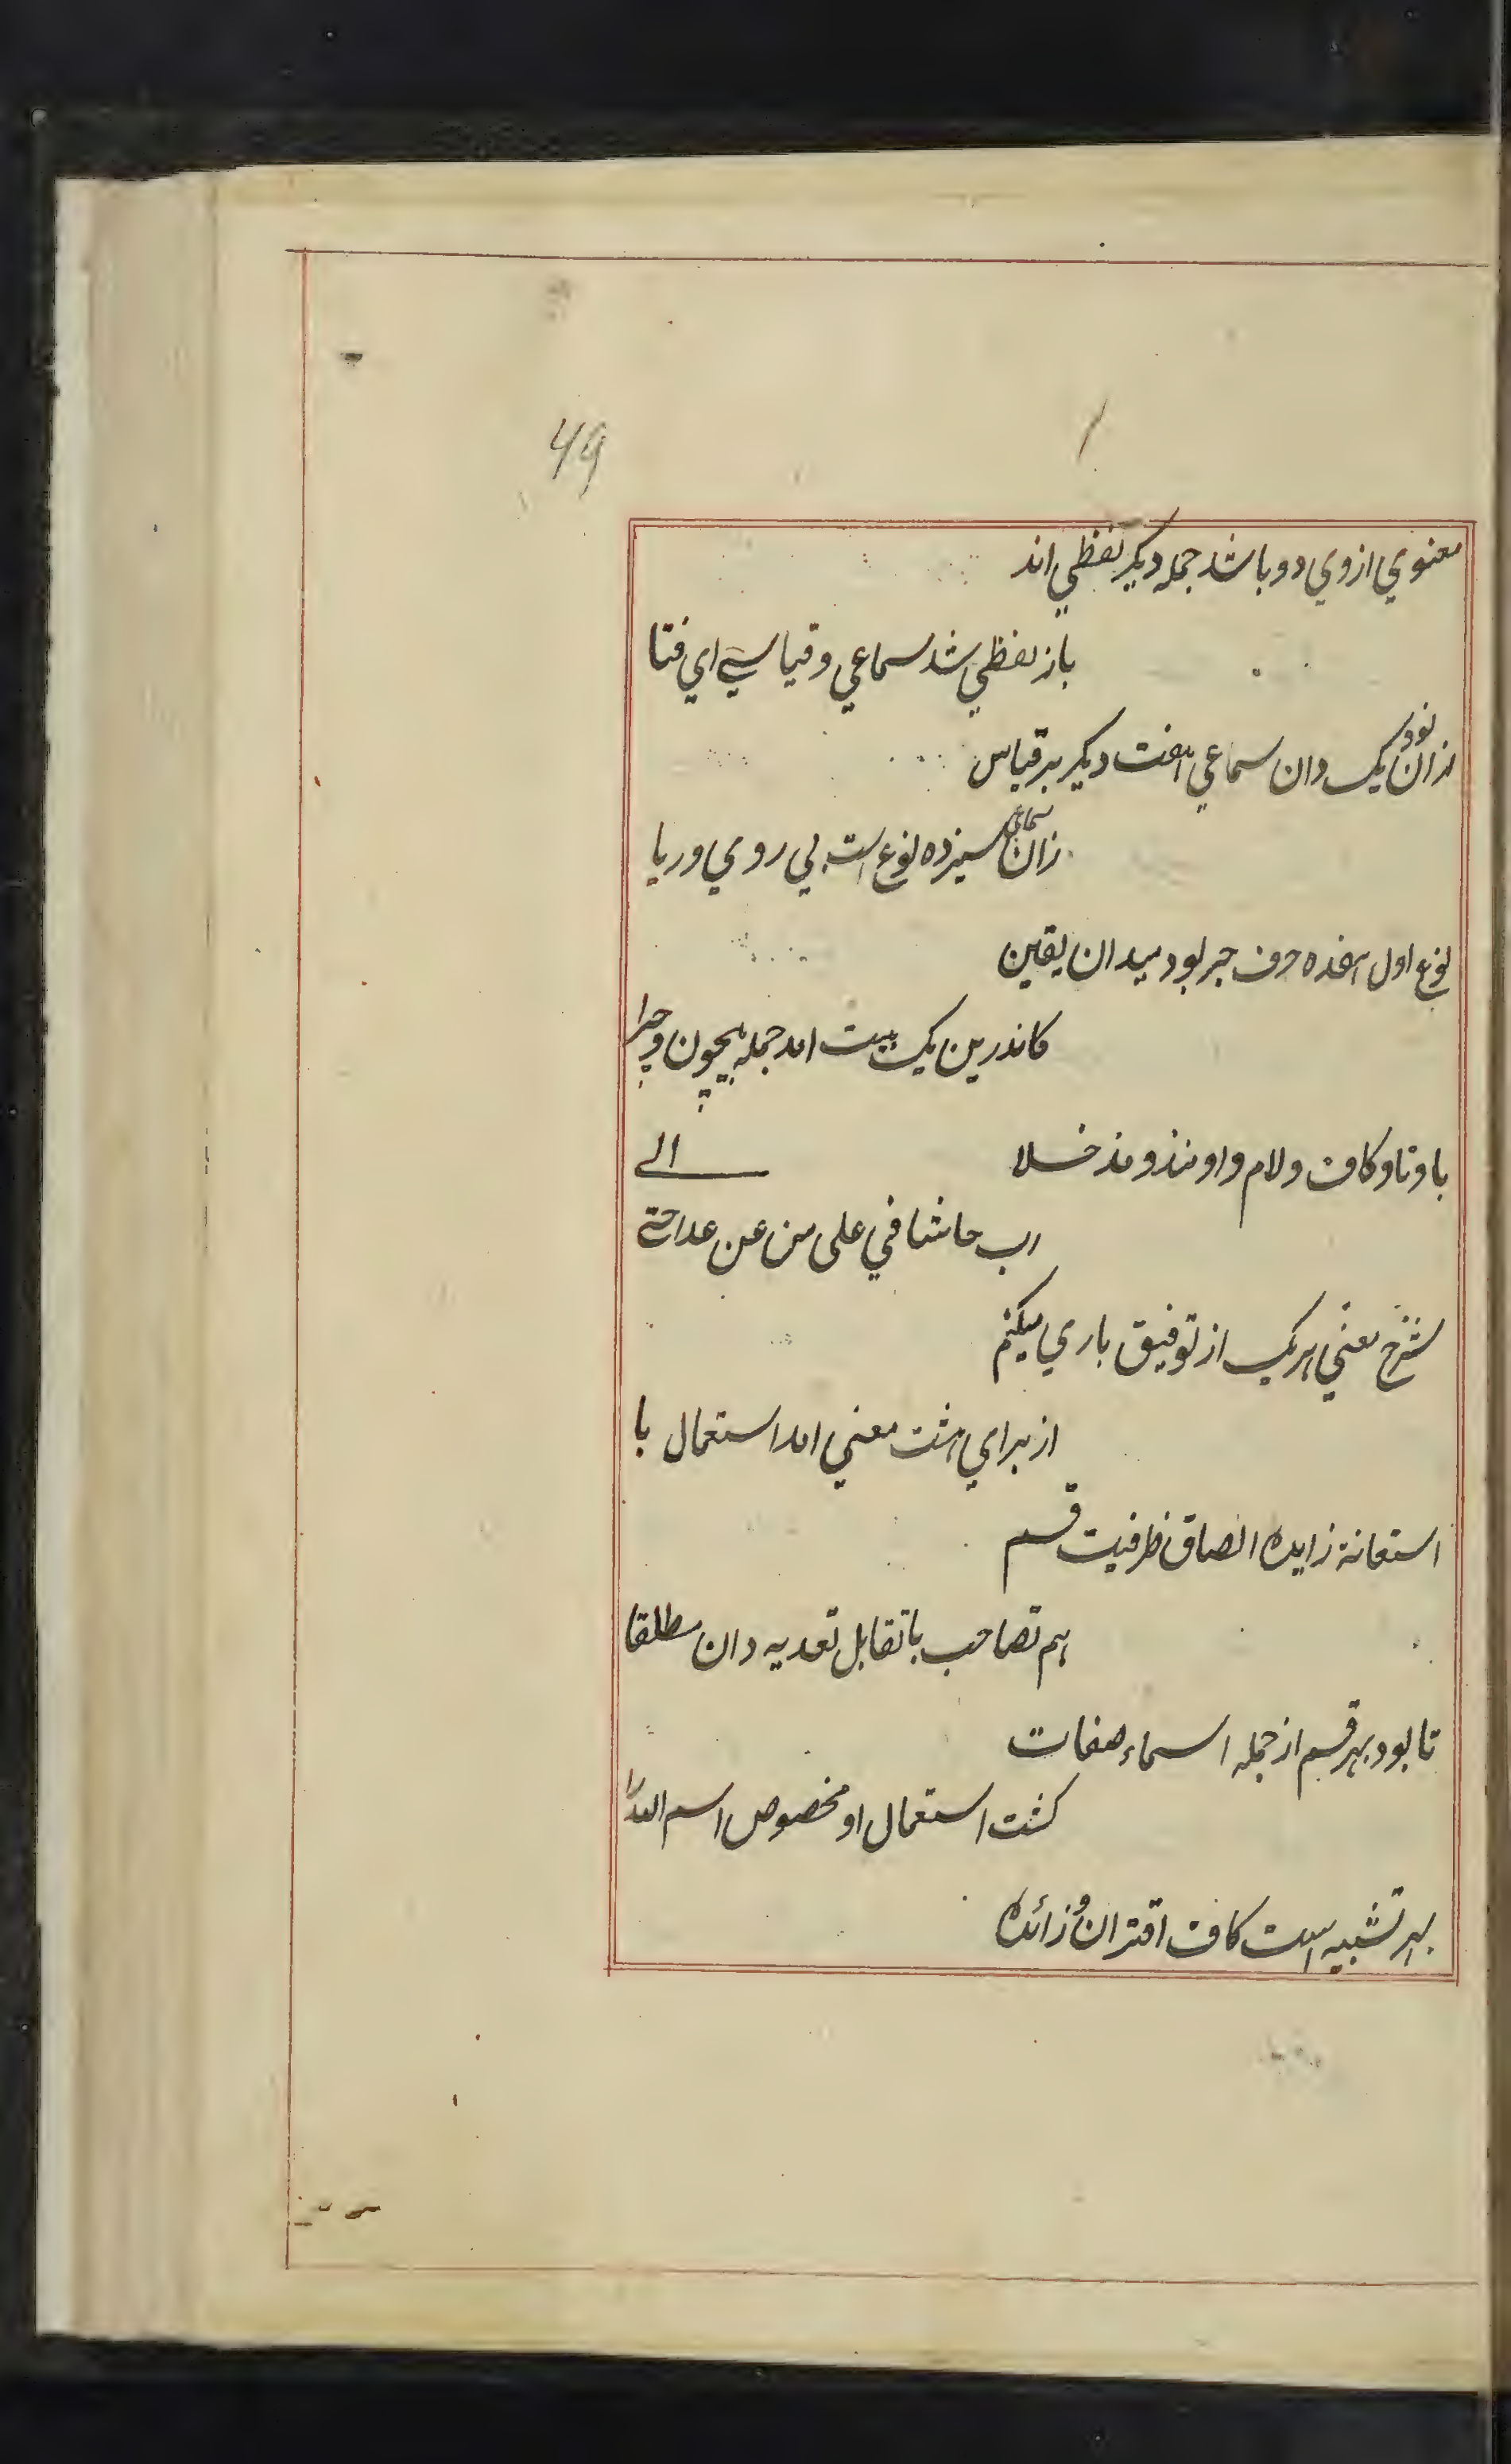 49
معنوي ازوي دو باشد جمله ديكر لفظي اند
باز لفظي شد سماعي و قياسي اي فتا
زان نود يك دان سماعي هفت ديكر بر قياس
زان سماعي سيزده نوع است بي روي و ريا
نوع اول هفده حرف جر بود ميدان يقين
كاندرين يك بيت امد جمله بيچون و چرا
باو تاو كاف و لام و او منذ و مذ خلا
رب حاشا في على من عن عدا حتى الى
شرح معني هر يك از توفيق باري ميكنم
از براي هشت معني امد استعمال با
استعانة زايده الصاق ظرفيت قسم
هم تصاحب با تقابل تعديه دان مطلقا
تا بود بهر قسم از جمله اسماء صفات
كشت استعمال او مخصوص اسم الله را
بهر تشبيه است كاف اقتران و زائده